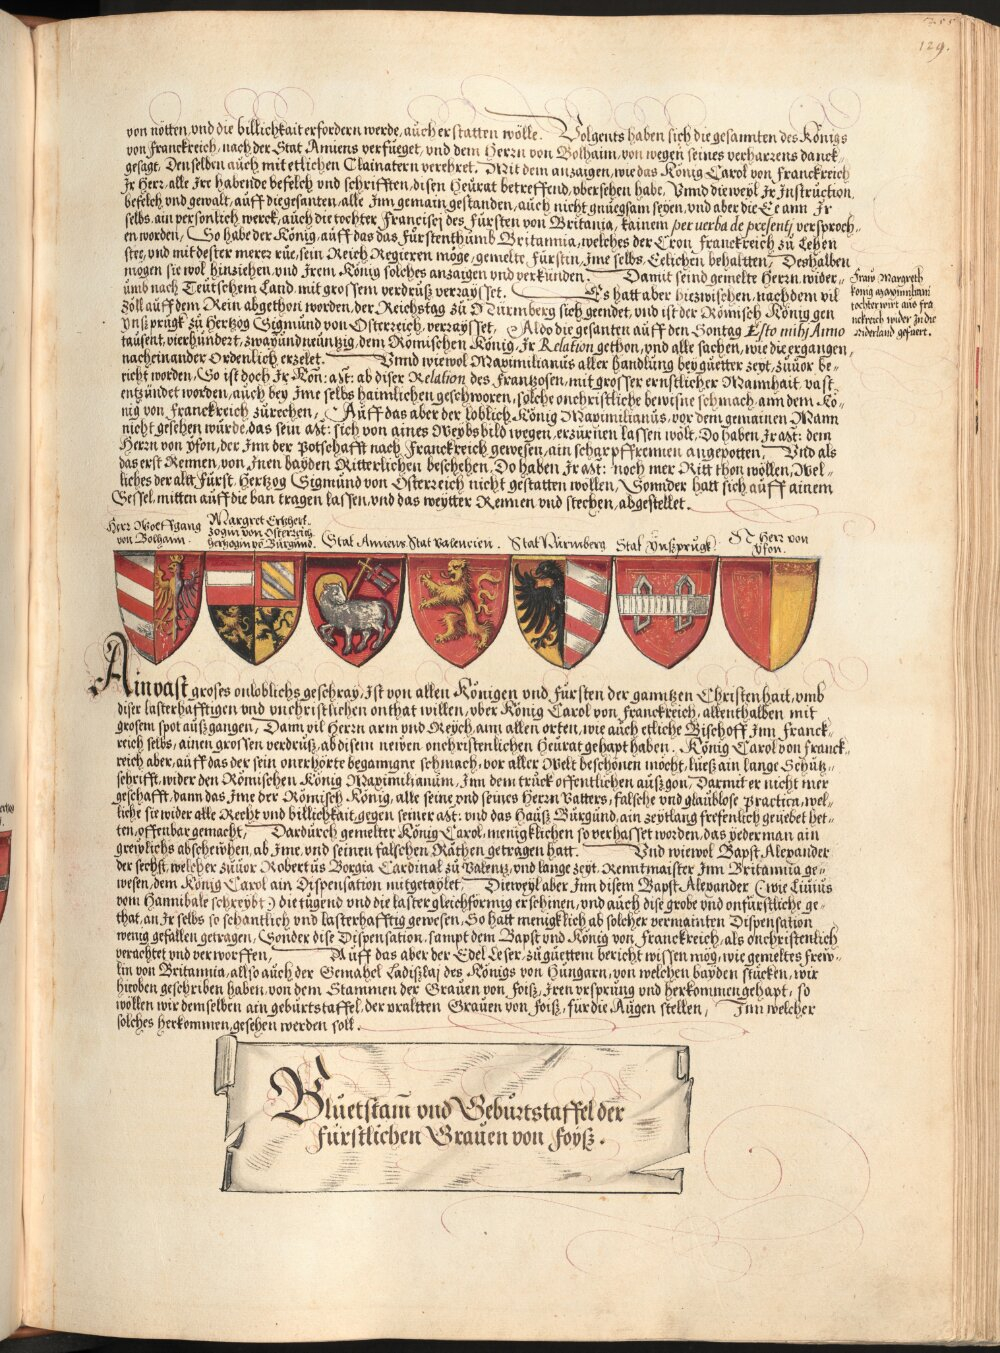 355
129.
von nötten, und die billichkait erfordern werde, auch erstatten wölle. Volgents haben sich die gesannten des Königs
von Franckreich, nach der Stat Amiens verfüeget, und dem Herrn von Bolhaim, von wegen seines verharrens danck-
gesagt, Denselben auch mit etlichen Clainatern verehret, Mit dem anzaigen, wie das König Carol von Franckreich
Jr Herr, alle Jre habende befelch und schrifften, disen Heürat betreffend, übersehen habe, Unnd dieweyl Jr Instruction
befelch und gewalt, auff die gesanten, alle Jnn gemain gestanden, auch nicht gnuegsam seyen, und aber die Ee ann Jr
selbs, ain personlich werck, auch die tochter Francisci des Fürsten von Britania, kainem per uerba de presentj versproch-
en worden, So habe der König, auff das das Fürstenthumb Britannia, welches der Cron Franckreich zu Lehen
stee, und mit dester merer rue, sein Reich Regieren möge, gemelte Fürstin, Jme selbs, Eelichen behaltten, Deshalben
mögen sie wol hinziehen, und Jrem König solches anzaigen und verkünden. Damit seind gemelte Herrn, wider-
umb nach Teutschem Land, mit grossem verdruß verraysset. Es hatt aber hiezwischen, nachdem vil
Zöll auff dem Rein abgethon worden, der Reichstag zu Nürmberg sich geendet, und ist der Römisch König gen
Ynßprugk zu Hertzog Sigmund von Osterreich, verraysset, Aldo die gesanten auff den Sontag Esto mihj Anno
tausent, vierhundert, zwayundneuntzig, dem Römischen König, Jr Relation gethon, und alle sachen, wie die ergangen,
nacheinander Ordenlich erzelet. Unnd wiewol Maximilianus aller handlung bey guetter zeyt, zuuor be-
richt worden, So ist doch Jr Kön: Mt: ab diser Relation des Frantzosen, mit grosser ernstlicher Mannhait, vast
entzündet worden, auch bey Jme selbs haimlichen geschworen, solche onchristliche bewisne schmach, ann dem Kö-
nig von Franckreich zurechen, Auff das aber der loblich König Maximilianus, vor dem gemainen Mann
nicht gesehen wurde, das sein Mt: sich von aines Weybsbild wegen, erzürnen lassen wölt, Do haben Jr Mt: dem
Herrn von Yson, der Jnn der Potschafft nach Franckreich gewesen, ain scharpffrennen angepotten, Und als
das erst Rennen, von Jnen bayden Ritterlichen beschehen, Do haben Jr Mt: noch mer Ritt thon wöllen, Wel-
liches der alt Fürst, Hertzog Sigmund von Osterreich nicht gestatten wöllen, Sonnder hatt sich auff ainem
Sessel, mitten auff die ban tragen lassen, und das weytter Rennen und stechen, abgestellet.
Fraw Margreth
konig Maximiliani
tochter wirt aus fra
nckreich wider in die
niderland gefuert.
Herr Wolffgang
von Bolhaim.
Margret Ertzhert-
zogin von Osterreich
hertzogin vō Burgund.
Stat Amiens
Stat Valencien.
Stat Nurmberg
Stat Ynßprugk.
N Herr von
Yson.
Ain vast groses onloblichs geschray, Jst von allen Königen und Fürsten der ganntzen Christenhait, umb
diser lasterhafftigen und unchristlichen onthat willen, über König Carol von Franckreich, allenthalben mit
grosem spot außgangen, Dann vil Herrn arm und Reych, ann allen orten, wie auch etliche Bischoff Jnn Franck-
reich selbs, ainen grossen verdruß, ab disem newen onchristenlichen Heürat gehapt haben. König Carol von Franck-
reich aber, auff das der sein onerhörte begangne schmach, vor aller Welt beschönen möcht, lueß ain lange Schutz-
schrifft, wider den Römischen König Maximilianum, Jnn dem truck offentlichen außgon, Darmit er nicht mer
geschafft, dann das Jme der Römisch König, alle seine und seines Herrn Vatters, falsche und glaublose practicn, wel-
liche sie wider alle Recht und billichkait, gegen seiner Mt: und das Hauß Burgund, ain zeytlang frefenlich geuebet het-
ten, offenbar gemacht, Dardurch gemelter König Carol, menigklichen so verhasset worden, das yederman ain
grewlichs abscheihen, ab Jme, und seinen falschen Räthen getragen hatt. Und wiewol Bapst Alexander
der sechst, welcher zuuor Robertus Borgia Cardinal zu Valentz, und lange zeyt, Renntmaister Jnn Britannia ge-
wesen, dem König Carol ain Dispensation mitgetaylet, Dieweyl aber Jnn disem Bapst Alexander (wie Liuius
vom Hannibale schreybt:) die tugend und die laster gleichförmig erschinen, und auch dise grobe und onfürstliche ge-
that, an Jr selbs so schantlich und lasterhafftig gewesen, So hatt menigklich ab solcher vermainten Dispensation
wenig gefallen getragen, Sonder dise Dispensation, sampt dem Bapst und König von Franckreich, als onchristenlich
verachtet und verworffen, Auff das aber der Edel Leser, zu guettem bericht wissen mög, wie gemeltes Frew-
lin von Britannia, allso auch der Gemahel Ladißlaj des Königs von Hungarn, von welchen bayden stucken, wir
hieoben geschriben haben, von dem Stammen der Grauen von Foiß, Jren ursprung und herkommen gehapt, so
wöllen wir demselben ain geburtstaffel, der uraltten Grauen von Foiß, für die Augen stellen, Jnn welcher
solches herkommen, gesehen werden soll.
Bluetstam̄ und Geburtstaffel der
Fürstlichen Grauen von Foyß.